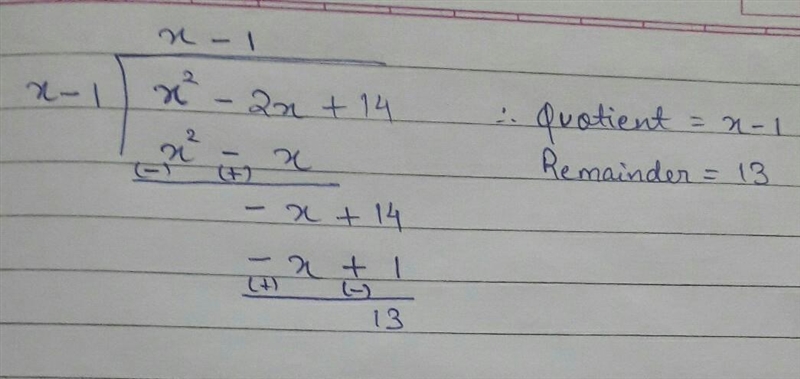 x - 1
x - 1 ) x² - 2x + 14
x² - x
(-) (+)
- x + 14
- x + 1
(+) (-)
13
∴ Quotient = x - 1
Remainder = 13